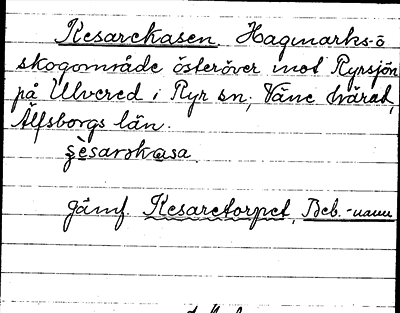 Kesarekasen. Hagmarks-o
skogområde österöver mot Ryrsjön
på Ulvered i Ryr sn; Väne härad,
Älfsborgs län.
jämf. Kesaretorpet, Beb.-namn